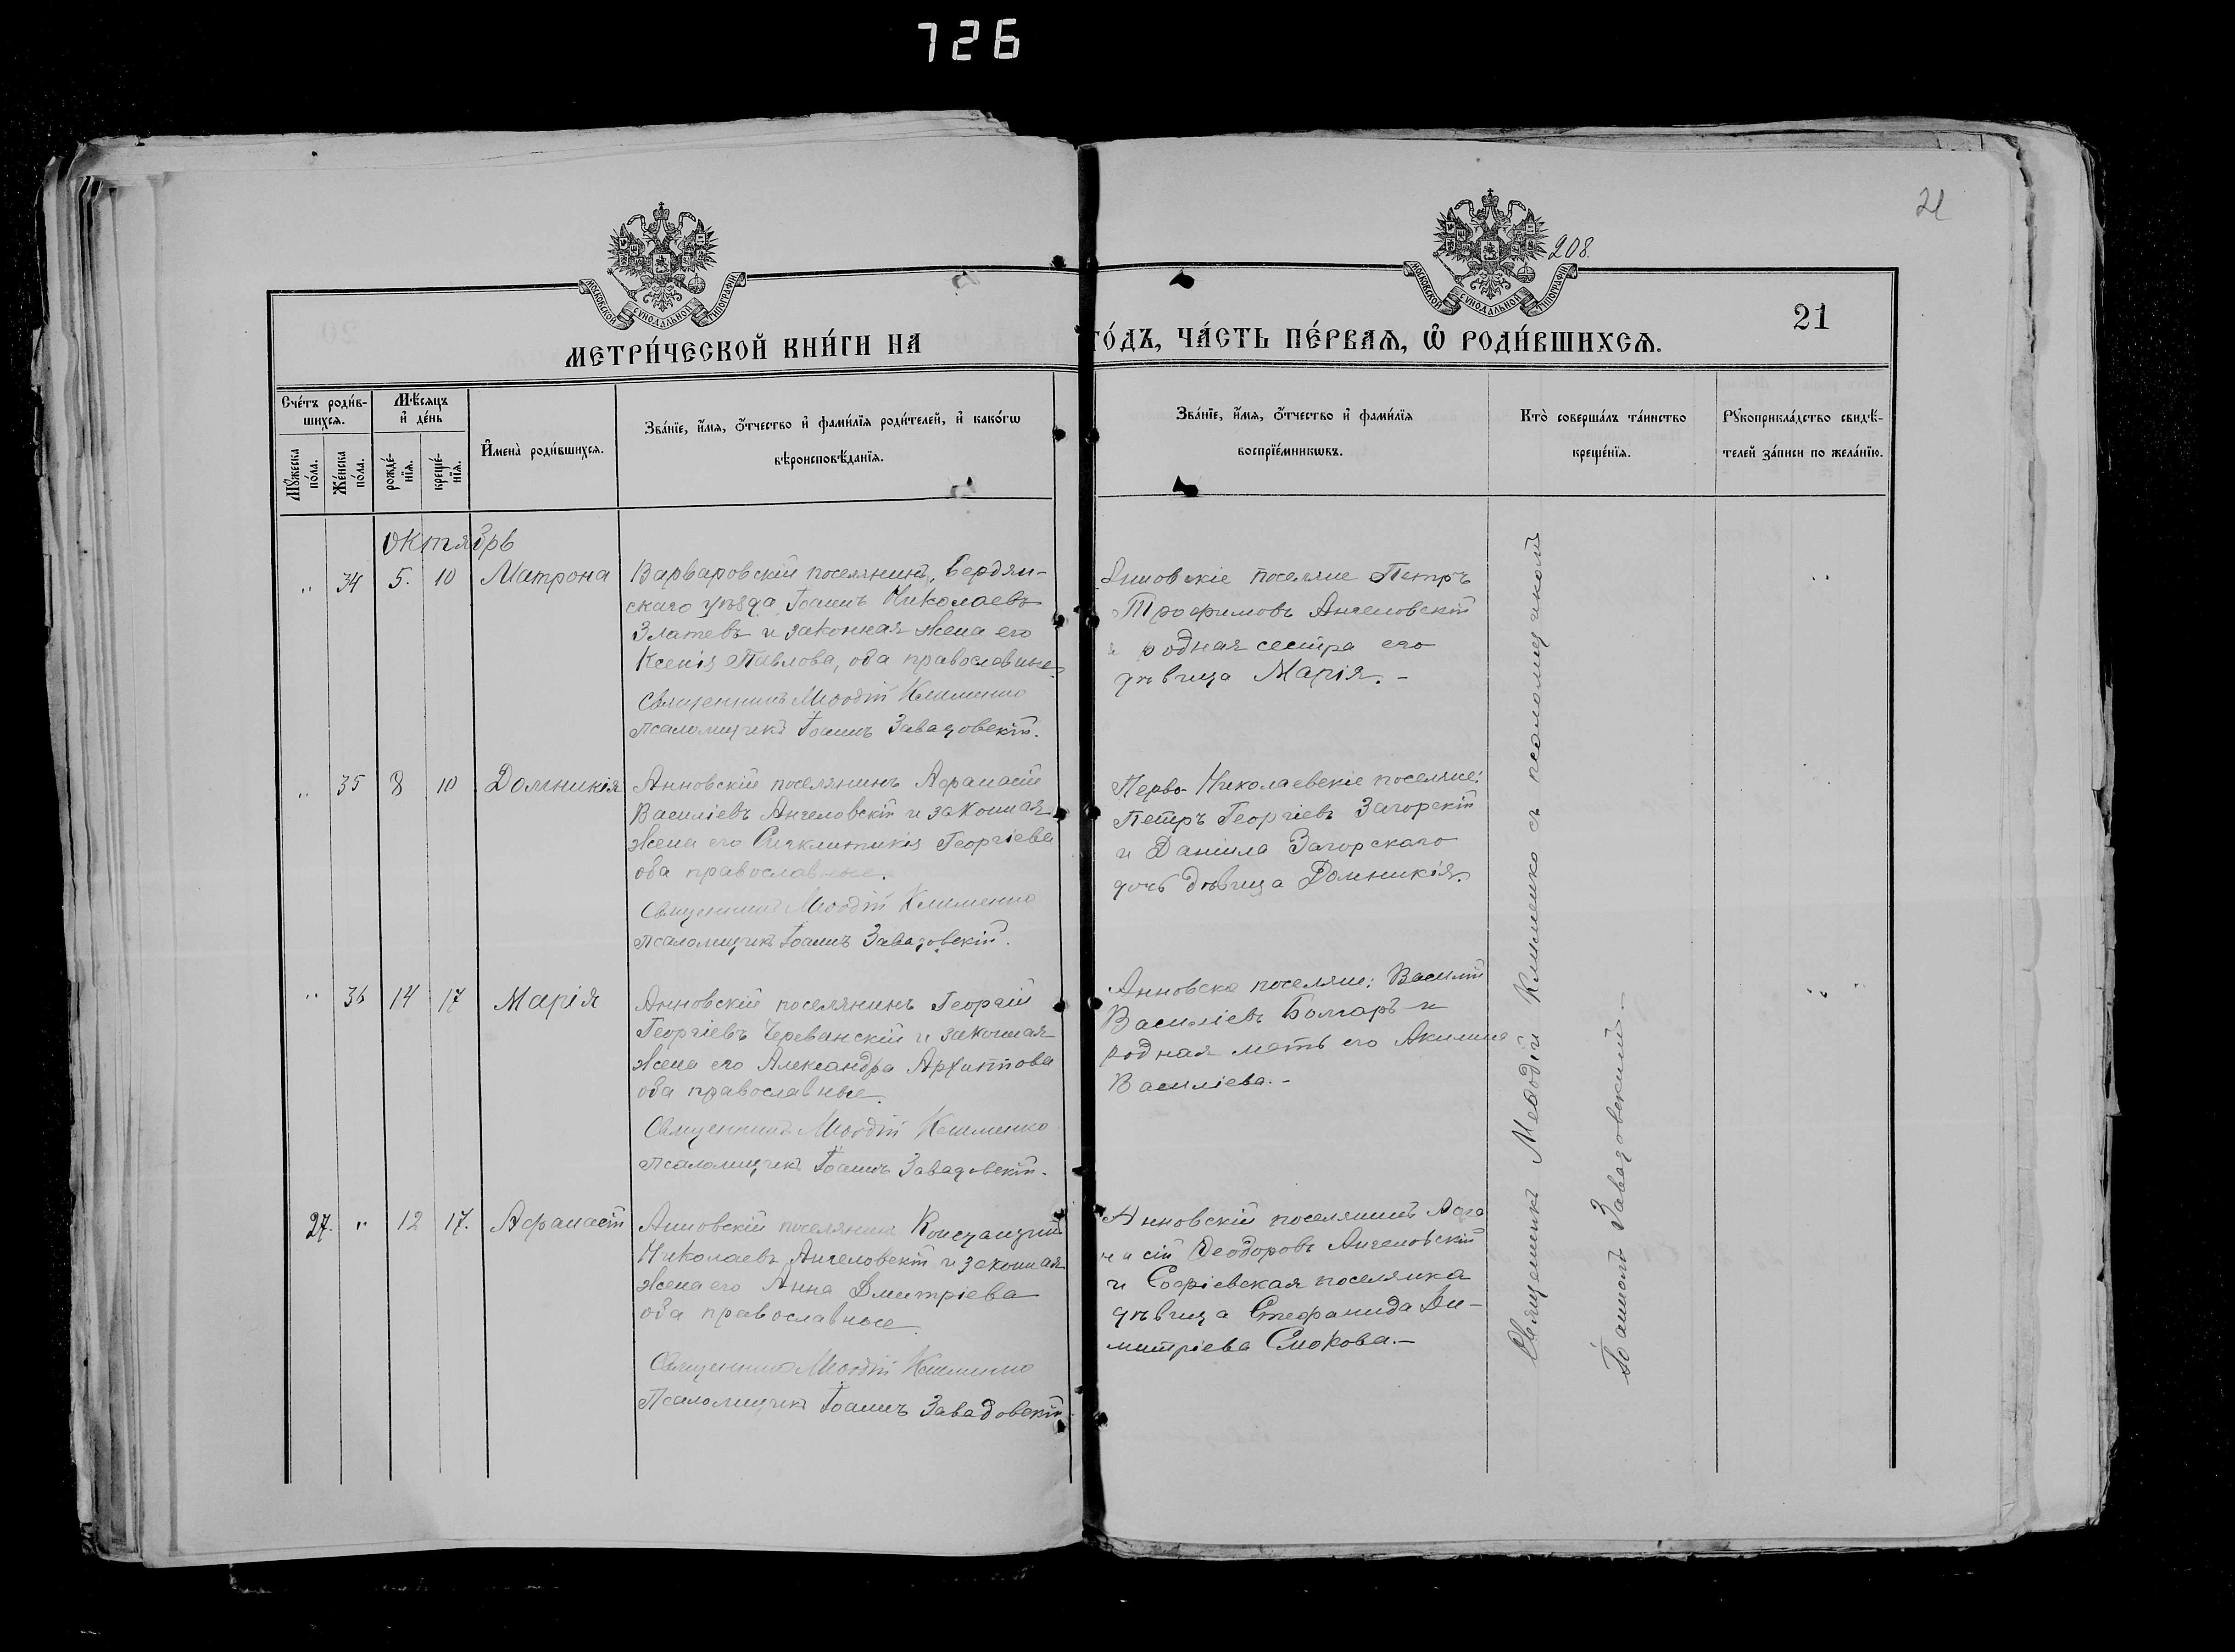 726
21
208.
МОСКОВСКОЙ СѴНОДАЛЬНОЙ ТИПОГРАФІИ
МОСКОВСКОЙ СѴНОДАЛЬНОЙ ТИПОГРАФІИ
21
МЕТРИ́ЧЕСКОЙ КНИ́ГИ НА ГО́ДЪ, ЧА́СТЬ ПЕ́РВАѦ, Ѡ҆ РОДИ́ВШИХСѦ.
Сче́тъ роди́в-
шихсѧ.
Мꙋ́жеска по́ла.
Же́нска по́ла.
Мѣ́сѧцъ
и҆ де́нь
рожде́-
нїѧ.
креще́-
нїѧ.
И҆мена̀ роди́вшихсѧ.
Зва́нїе, и҆́мѧ, ѻ҆́тчество и҆ фами́лїѧ роди́телей, и҆ како́гѡ
вѣроисповѣ́данїѧ.
Зва́нїе, и҆́мѧ, ѻ҆́тчество и҆ фами́лїѧ
воспрїе́мникѡвъ.
Кто̀ соверша́лъ та́инство
креще́нїѧ.
Рꙋкоприкла́дство свидѣ́-
телей за́писи по жела́нїю.
Октябрь
" 34 5. 10 Матрона
Варваровскій поселянинъ, Бердян-
скаго уѣзда Іоаннъ Николаевъ
Златевъ и законная жена его
Ксенія Павлова, оба православные
Священникъ Меѳодій Клименко
Псаломщикъ Іоаннъ Завадовскій.
Анновскіе поселяне Петръ
Трофимовъ Ангеловскій
и родная сестра его
дѣвица Марія. -
" 35 8 10 Домникія
Анновскій поселянинъ Афанасій
Василіевъ Ангеловскій и законная
жена его Синклитикія Георгіева
оба православные.
Священникъ Меѳодій Клименко
Псаломщикъ Іоаннъ Завадовскій.
Перво-Николаевскіе поселяне:
Петръ Георгіевъ Загорскій
и Даніила Загорскаго
дочь дѣвица Домникія.
" 36 14 17 Марія
Анновскій поселянинъ Георгій
Георгіевъ Череванскій и законная
жена его Александра Архиппова
оба православные.
Священникъ Меѳодій Клименко
Псаломщикъ Іоаннъ Завадовскій.
Анновскe поселяне: Василій
Василіевъ Болгаръ и
родная мать его Акилина
Василіева. -
27. " 12 17. Афанасій
Анновскій поселянинъ
Николаевъ Ангеловскій и законная
жена его Анна Дмитріева
оба православные
Священникъ Меѳодій Клименко
Псаломщикъ Іоаннъ Завадовскій
Анновскій поселянинъ Афа
насій Ѳеодоровъ Ангеловскій
и Софіевская поселянка
дѣвица Стефанида Ди-
митріева Смокова. -
Священникъ Меѳодій Клименко съ псаломщикомъ
Іоанномъ Завадовскимъ. -